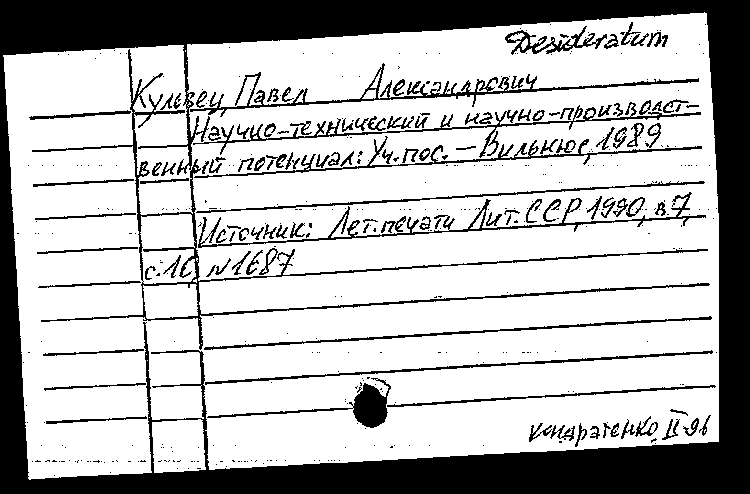 Desideratum
Кульвец, Павел Александрович
Научно-технический и научно-производст-
венный потенциал: Уч. пос. – Вильнюс, 1989
Источник: Лет. печати Лит. ССР, 1990, в. 7,
с. 16, N 1687
Кондратенко, II-96